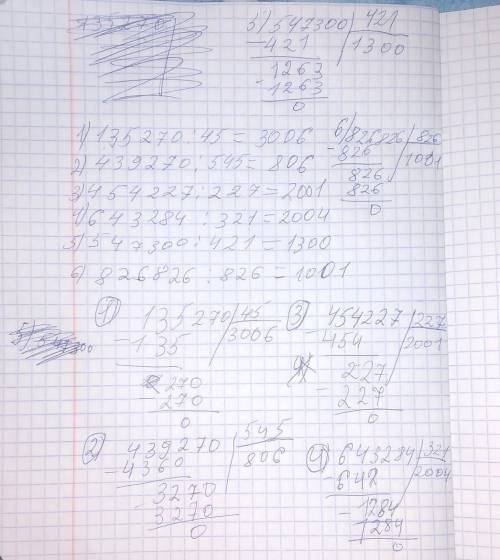 5) 547300 | 421
- 421 | 1300
1263
- 1263
0
1) 135270 : 45 = 3006
2) 439270 : 545 = 806
3) 454227 : 227 = 2001
4) 643284 : 321 = 2004
5) 547300 : 421 = 1300
6) 826826 : 826 = 1001
6) 826826 | 826
- 826 | 1001
826
826
0
1) 135270 | 45
- 135 | 3006
270
- 270
0
3) 454227 | 227
- 454 | 2001
227
- 227
0
2) 439270 | 545
- 4360 | 806
3270
- 3270
0
4) 643284 | 321
- 642 | 2004
1284
- 1284
0